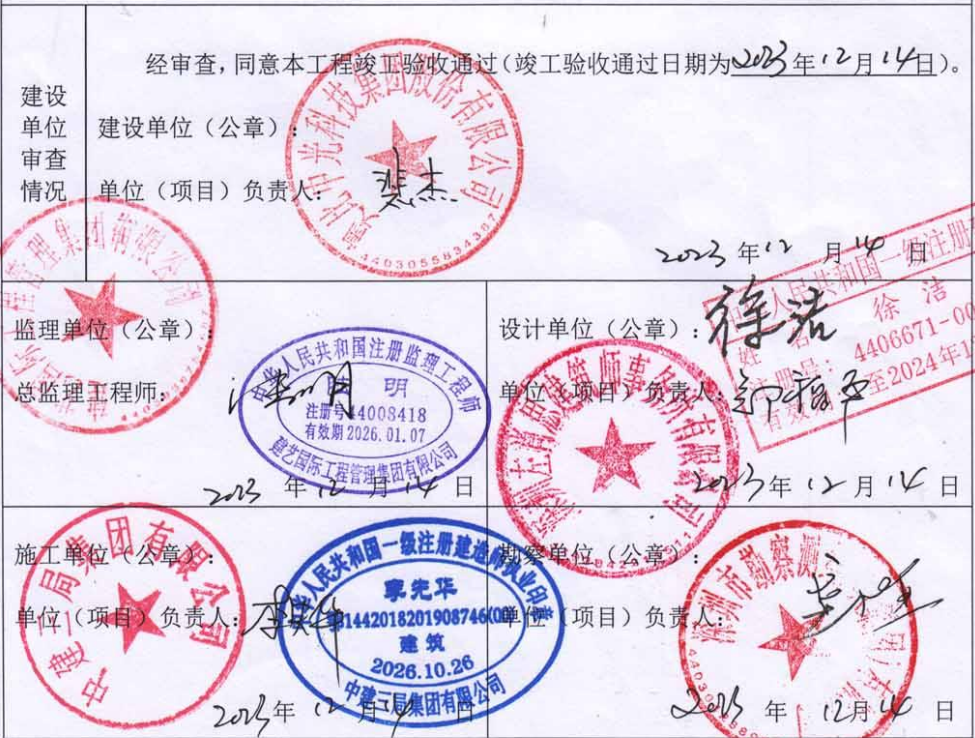 经审查，同意本工程竣工验收通过（竣工验收通过日期为2023年12月14日）。
建设
单位
审查
情况
建设单位（公章）：
单位（项目）负责人：
2023年12月14日
监理单位（公章）：
总监理工程师：
中华人民共和国注册监理工程师
明
注册号44008418
有效期2026.01.07
建艺国际工程管理集团有限公司
2023年12月14日
设计单位（公章）：徐洁
单位（项目）负责人：
人民共和国一级注册
徐洁
4406671-00
至2024年1
建筑师事务所有限公司
2023年12月14日
施工单位（公章）：
单位（项目）负责人：
中建三局集团有限公司
中华人民共和国一级注册建造师执业印章
1442018201908746(00)
建筑
2026.10.26
中建三局集团有限公司
2023年12月14日
勘察单位（公章）：
单位（项目）负责人：
市勘察测
2023年12月14日